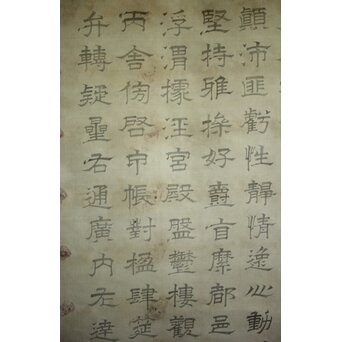 顛沛匪虧性靜情逸心動
堅持雅操好爵自縻都邑
浮渭據涇宮殿盤鬱樓觀
丙舍傍啓甲帳對楹肆筵
弁轉疑星右通廣內左達